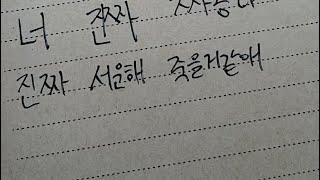 너 진짜
진짜 서운해 죽을거같애